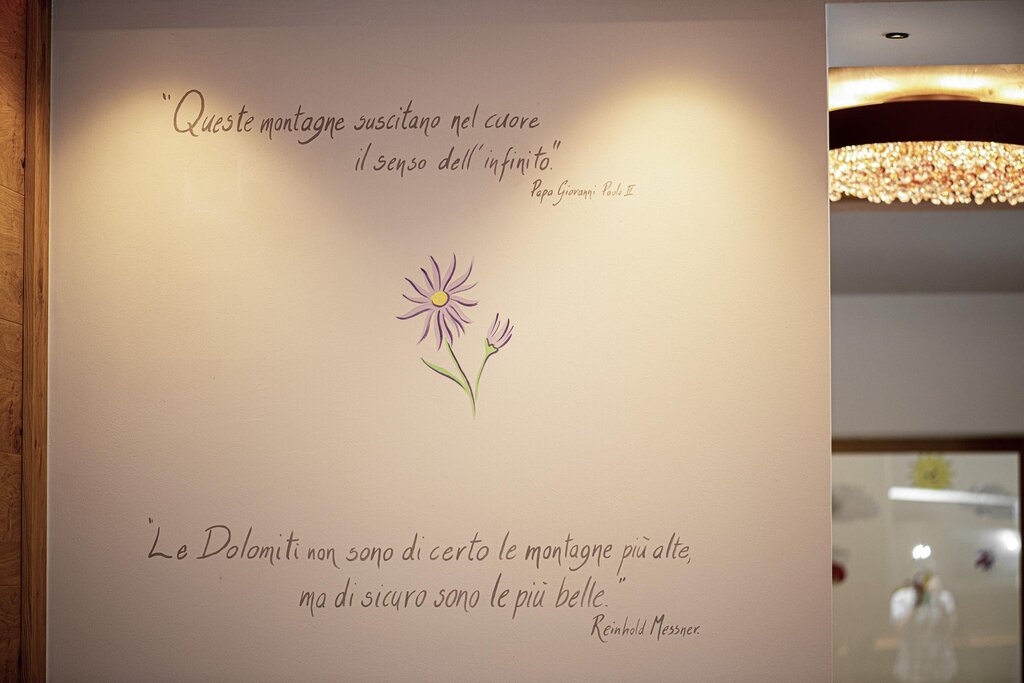 "Queste montagne suscitano nel cuore
il senso dell'infinito."
Papa Giovanni Paolo II
"Le Dolomiti non sono di certo le montagne più alte,
ma di sicuro sono le più belle."
Reinhold Messner.